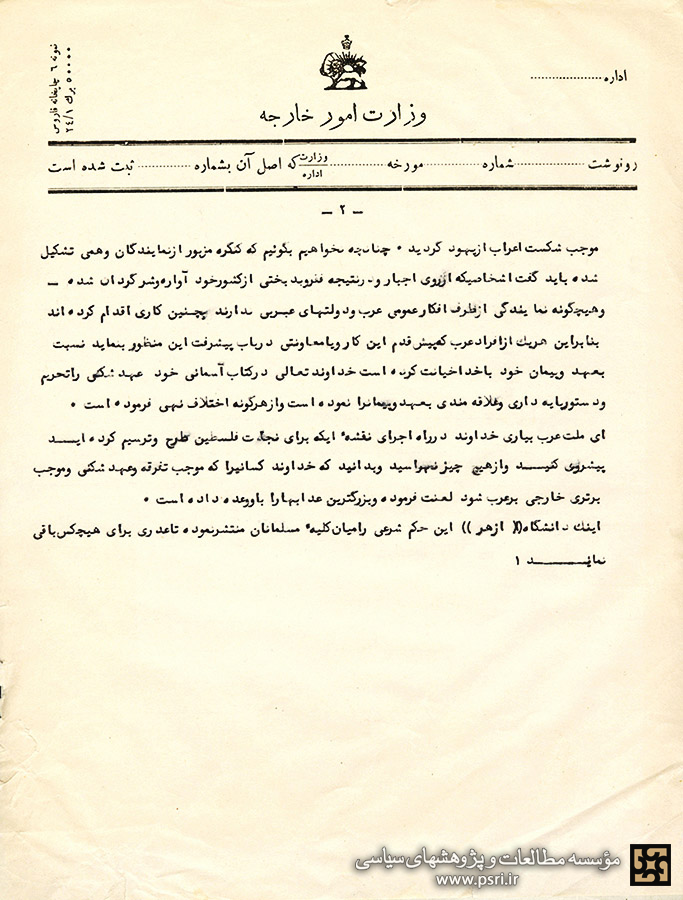 اداره ......................
نمونه ۶ چاپخانه فاروس
۵۰۰۰۰ برك ۲۴/۱
وزارت امور خارجه
رونوشت .................. شماره .................. مورخه .................. وزارت اداره که اصل آن بشماره .............. ثبت شده است
ـ ۲ ـ
موجب شکست اعراب ازیهود گردید ۰ چنانچه بخواهیم بگوئیم که کنگره مزبور ازنمایندگان وهمی تشکیل
شده باید گفت اشخاصیکه ازروی اجبار ودرنتیجه فقروبدبختی ازکشورخود آواره وسرگردان شده ـ
وهیچگونه نمایندگی ازطرف افکارعمومی عرب ودولتهای عربی ندارند بچنین کاری اقدام کرده اند
بنابراین هریك ازافرادعرب که پیش قدم این کار ویامعاونتی درباب پیشرفت این منظور بنماید نسبت
بعهد وپیمان خود باخداخیانت کرده است خداوند تعالی درکتاب آسمانی خود عهد شکنی راتحریم
ودستورپایه داری وعلاقه مندی بعهد وپیمانرا نموده است وازهرگونه اختلاف نهی فرموده است ۰
ای ملت عرب بیاری خداوند درراه اجرای نقشه ایکه برای نجات فلسطین طرح وترسیم کرده ایـــد
پیشروی کنیـــد وازهیچ چیز نهراسید وبدانید که خداوند کسانیرا که موجب تفرقه وعهد شکنی وموجب
برتری خارجی برعرب شود لعنت فرموده وبزرگترین عذابهارا باووعده داده است ۰
اینك دانشگاه(( ازهر )) این حکم شرعی رامیان کلیه مسلمانان منتشرنموده تاعذری برای هیچکس باقی
نمانــــــد !
مؤسسه مطالعات و پژوهشهای سیاسی
www.psri.ir